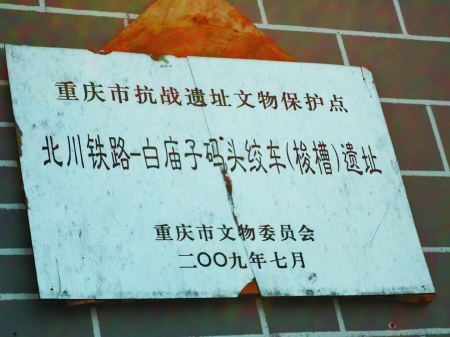 重庆市抗战遗址文物保护点
北川铁路-白庙子码头绞车(梭槽)遗址
重庆市文物委员会
二〇〇九年七月